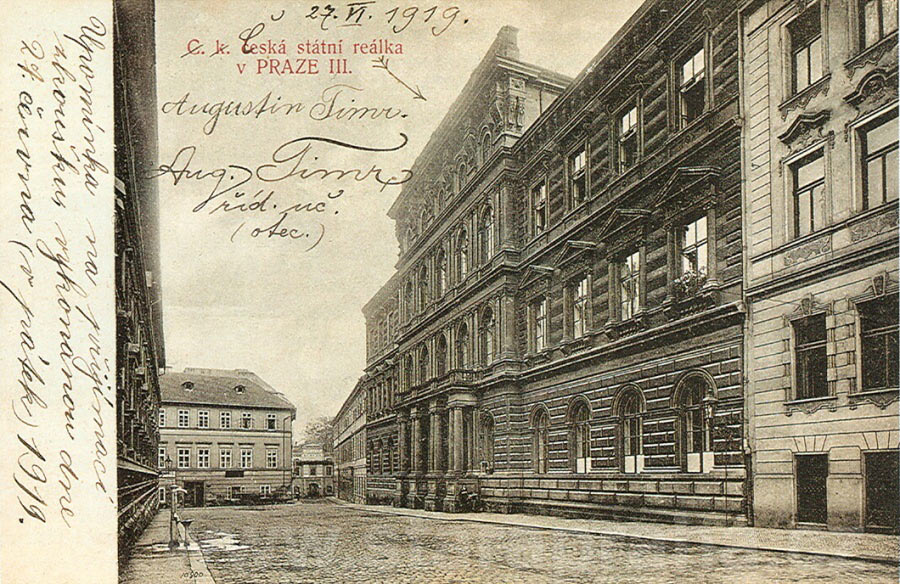 27. VI. 1919.
C. k. česká státní reálka
v PRAZE III.
Augustin Timr.
Aug. Timr
říd. uč.
(otec.)
Upomínka na přijímací
zkoušku vykonanou dne
27. června (v pátek) 1919.
10900